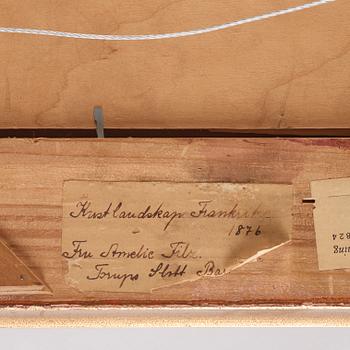 Kustlandskap Frankrike
1876
Fru Amelie Filz.
Torups Slott Ba
ing
824